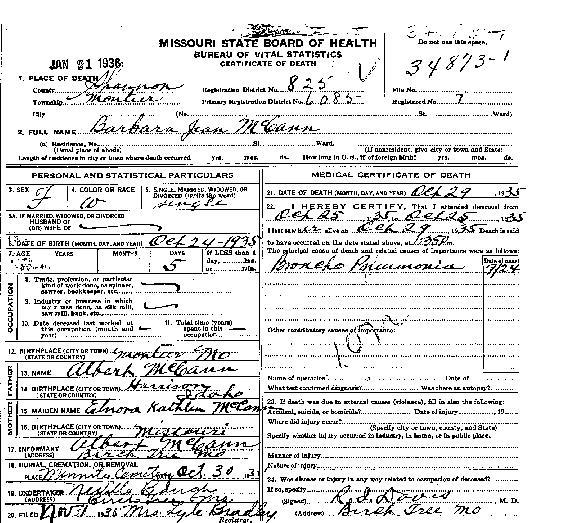 MISSOURI STATE BOARD OF HEALTH
Do not use this space.
BUREAU OF VITAL STATISTICS
CERTIFICATE OF DEATH
JAN 21 1936
34873-1
1. PLACE OF DEATH
County Shannon Registration District No. 825 File No.
Township Montier Primary Registration District No. 6085 Registered No. 7
City (No. St. Ward)
2. FULL NAME Barbara Jean McCann
(a) Residence, No. St. Ward.
(Usual place of abode) (If nonresident, give city or town and State)
Length of residence in city or town where death occurred yrs. mos. ds. How long in U. S., if of foreign birth? yrs. mos. ds.
PERSONAL AND STATISTICAL PARTICULARS
3. SEX F
4. COLOR OR RACE W
5. SINGLE, MARRIED, WIDOWED, OR DIVORCED (write the word) single
5A. IF MARRIED, WIDOWED, OR DIVORCED
HUSBAND OF
(OR) WIFE OF
6. DATE OF BIRTH (MONTH, DAY, AND YEAR) Oct 24-1935
7. AGE YEARS MONTHS DAYS If LESS than 1 day,
5
8. Trade, profession, or particular
kind of work done, as spinner,
sawyer, bookkeeper, etc.
9. Industry or business in which
work was done, as silk mill,
saw mill, bank, etc.
10. Date deceased last worked at
this occupation (month and
year)
11. Total time (years)
spent in this
occupation
OCCUPATION
12. BIRTHPLACE (CITY OR TOWN) Montier Mo
(STATE OR COUNTRY)
FATHER
13. NAME Albert McCann
14. BIRTHPLACE (CITY OR TOWN) Harrison
(STATE OR COUNTRY) Idaho
MOTHER
15. MAIDEN NAME Kathleen
16. BIRTHPLACE (CITY OR TOWN)
(STATE OR COUNTRY) Missouri
17. INFORMANT Albert McCann
(ADDRESS) Birch Tree Mo
18. BURIAL, CREMATION, OR REMOVAL
PLACE Cemetery Oct. 30
19. UNDERTAKER
(ADDRESS) Birch Tree Mo
20. FILED Nov 1 Mrs Lyle Bradley
Registrar.
MEDICAL CERTIFICATE OF DEATH
21. DATE OF DEATH (MONTH, DAY, AND YEAR) Oct 29 1935
22. I HEREBY CERTIFY, That I attended deceased from
Oct 25 35 Oct 25 1935
I last saw alive on Oct 29 1935 Death is said
to have occurred on the date stated above, at 1:35 P.m.
The principal cause of death and related causes of importance were as follows:
Broncho Pneumonia
Date of onset
Other contributory causes of importance:
Name of operation Date of
What test confirmed diagnosis? Was there an autopsy?
23. If death was due to external causes (violence), fill in also the following:
Accident, suicide, or homicide? Date of injury 19
Where did injury occur?
(Specify city or town, county, and State)
Specify whether injury occurred in industry, in home, or in public place.
Manner of injury
Nature of injury
24. Was disease or injury in any way related to occupation of deceased?
If so, specify
(Signed) Davis M. D.
(Address) Birch Tree Mo